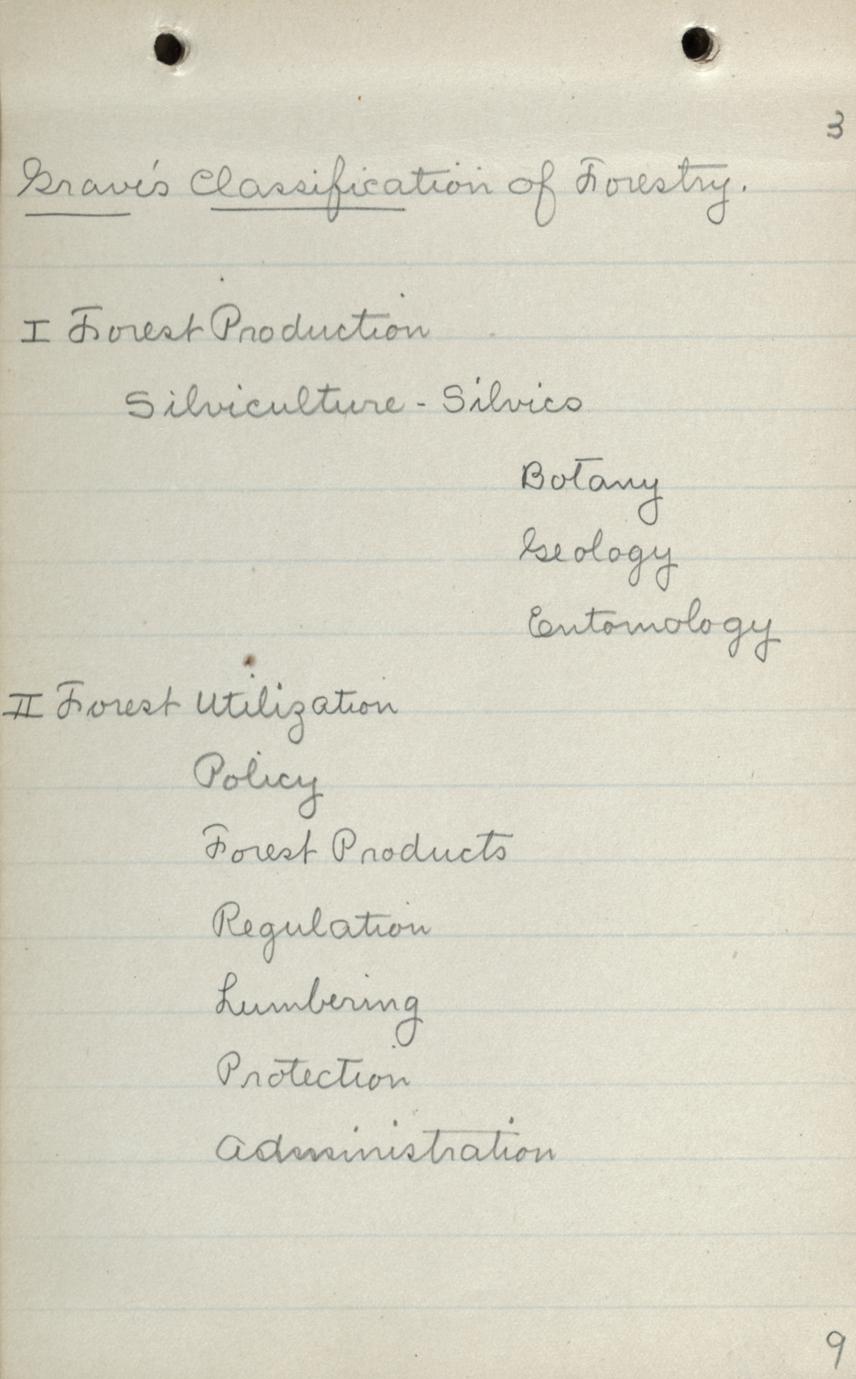 3
Grave's Classification of Forestry.
I Forest Production
Silviculture - Silvics
Botany
Geology
Entomology
II Forest Utilization
Policy
Forest Products
Regulation
Lumbering
Protection
Administration
9